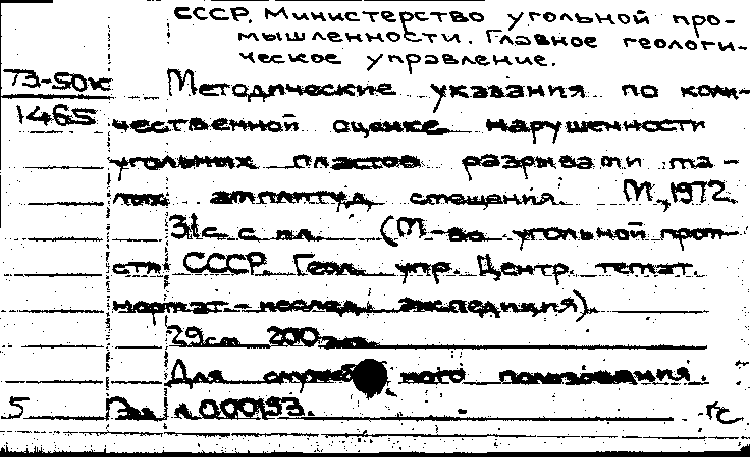 СССР. Министерство угольной про-
мышленности. Главное геологи-
ческое управление.
73-50к Методические указания по коли-
1465 чественной оценке нарушенности
угольных пластов разрывами ма-
лых амплитуд смещения. М., 1972.
31с. с пл. (М-во угольной пром-
сти СССР. Геол. упр. Центр. темат.
нормат.-исслед. экспедиция).
29см 200экз.
Для служебного пользования.
5 Экз. н.000193.